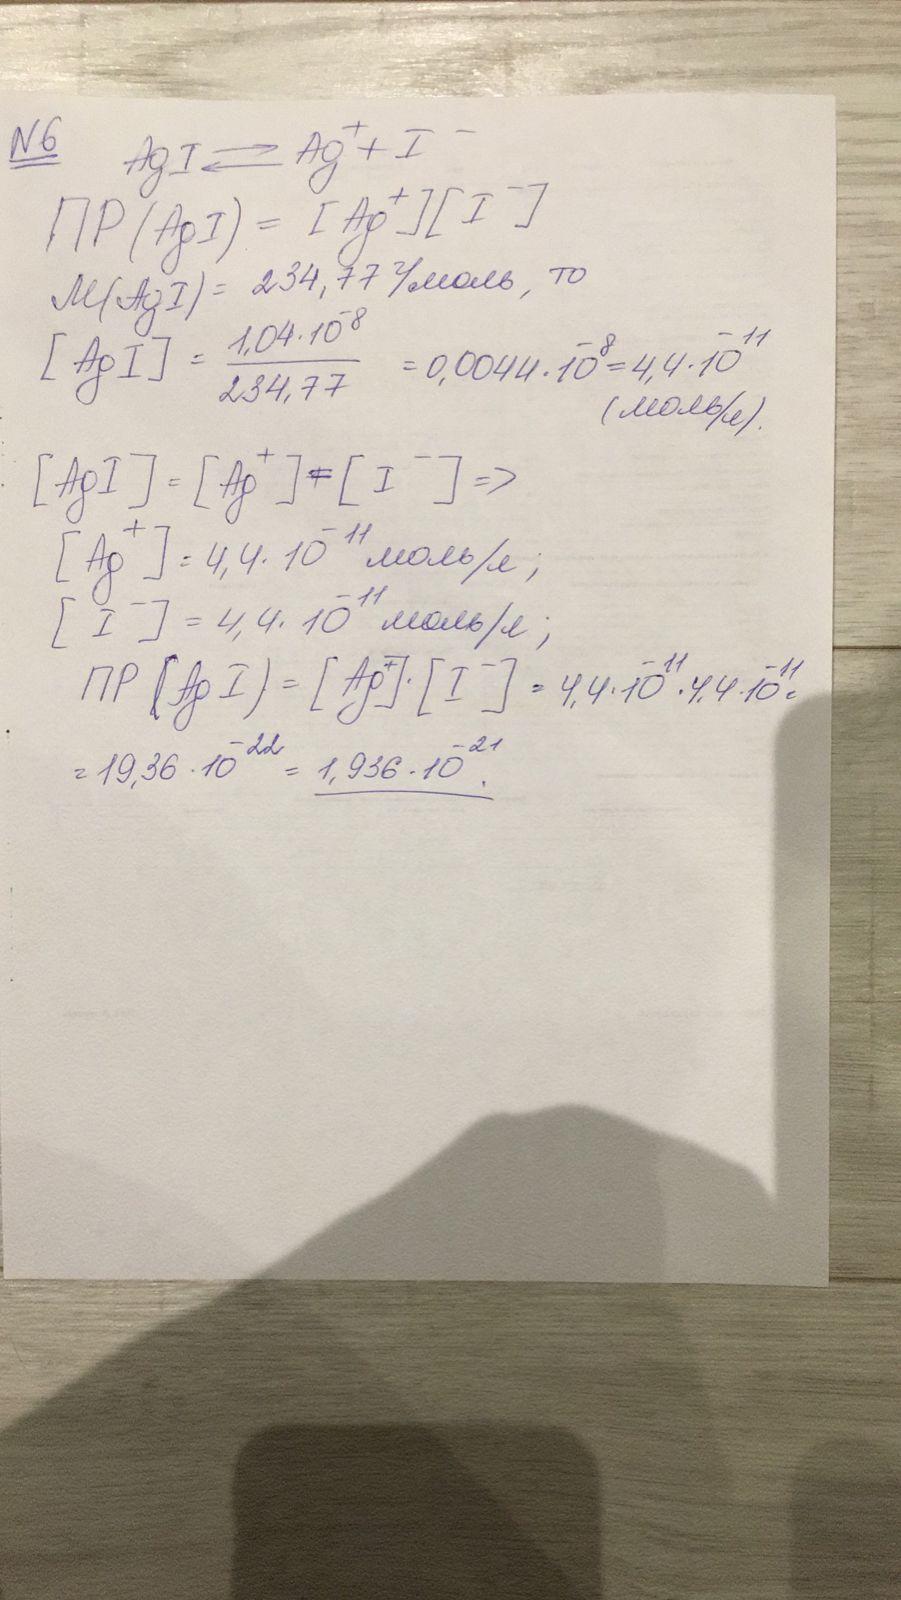 N6
AgI ⇄ Ag⁺ + I⁻
ПР (AgI) = [Ag⁺][I⁻]
M(AgI) = 234,77 г/моль, то
[AgI] = 1,04·10⁻⁸ / 234,77 = 0,0044·10⁻⁸ = 4,4·10⁻¹¹
(моль/л).
[AgI] = [Ag⁺] = [I⁻] =>
[Ag⁺] = 4,4·10⁻¹¹ моль/л;
[I⁻] = 4,4·10⁻¹¹ моль/л;
ПР (AgI) = [Ag⁺]·[I⁻] = 4,4·10⁻¹¹·4,4·10⁻¹¹ =
= 19,36·10⁻²² = 1,936·10⁻²¹.